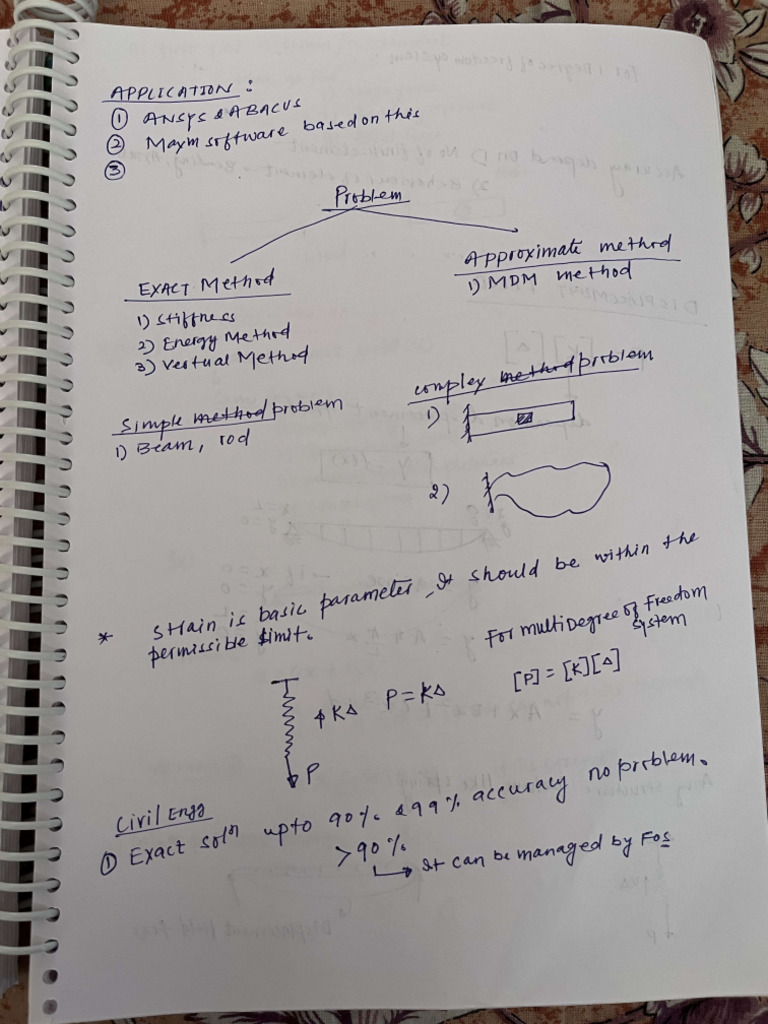 APPLICATION :
① ANSYS & ABACUS
② Maxm software based on this
③
Problem
EXACT Method
1) Stiffness
2) Energy Method
3) Vertual Method
Approximate method
1) MDM method
Simple method problem
1) Beam, rod
complex method problem
1)
2)
* Strain is basic parameter, It should be within the
permissible limit.
For multi Degree of Freedom
System
KΔ P = KΔ
[P] = [K][Δ]
P
Civil Engg
① Exact soln upto 90% & 99% accuracy no problem.
>90%
It can be managed by FOS